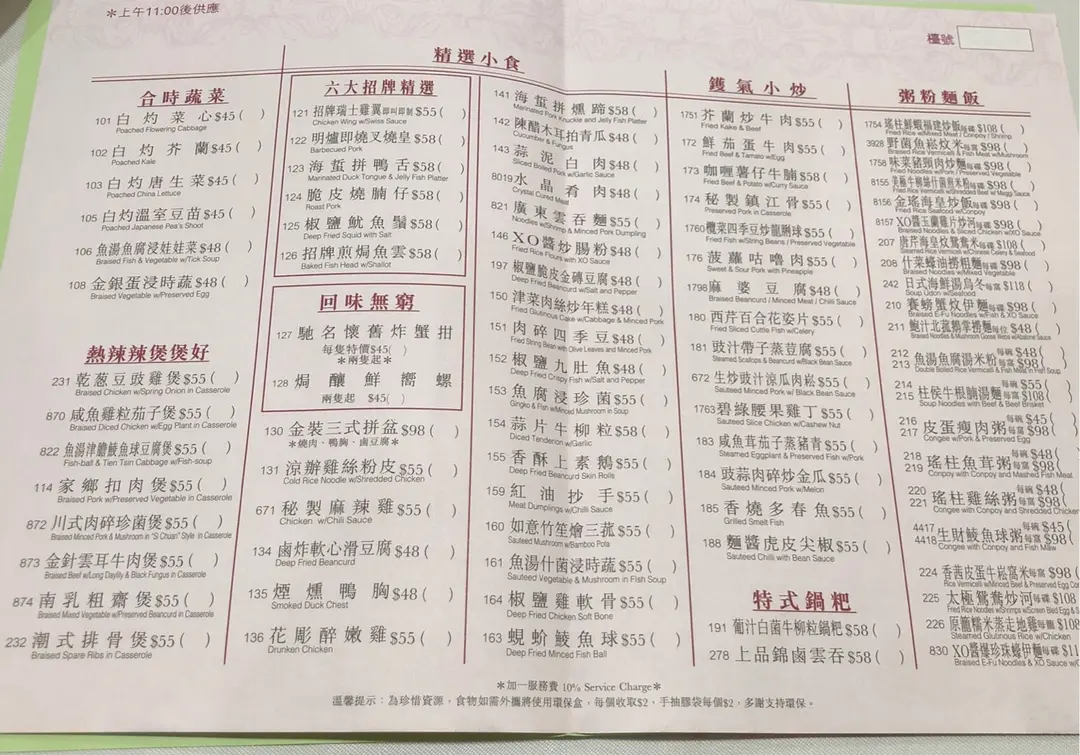 *上午11:00後供應
檯號
精選小食
合時蔬菜
101 白灼菜心 $45 ( )
Poached Flowering Cabbage
102 白灼芥蘭 $45 ( )
Poached Kale
103 白灼唐生菜 $45 ( )
Poached China Lettuce
105 白灼溫室豆苗 $45 ( )
Poached Japanese Pea's Shoot
106 魚湯魚腐浸娃娃菜 $48 ( )
Braised Fish & Vegetable w/Tick Soup
108 金銀蛋浸時蔬 $48 ( )
Braised Vegetable w/Preserved Egg
熱辣辣煲煲好
231 乾葱豆豉雞煲 $55 ( )
Braised Chicken w/Spring Onion in Casserole
870 咸魚雞粒茄子煲 $55 ( )
Braised Diced Chicken w/Egg Plant in Casserole
822 魚湯津膽鯪魚球豆腐煲 $55 ( )
Fish-ball & Tien Tsin Cabbage w/Fish-soup
114 家鄉扣肉煲 $55 ( )
Braised Pork w/Preserved Vegetable in Casserole
872 川式肉碎珍菌煲 $55 ( )
Braised Minced Pork & Mushroom in "S Chuan" Style in Casserole
873 金針雲耳牛肉煲 $55 ( )
Braised Beef w/Long Daylily & Black Fungus in Casserole
874 南乳粗齋煲 $55 ( )
Braised Mixed Vegetable w/Preserved Beancurd in Casserole
232 潮式排骨煲 $55 ( )
Braised Spare Ribs in Casserole
六大招牌精選
121 招牌瑞士雞翼 即叫即制 $55 ( )
Chicken Wing w/Swiss Sauce
122 明爐即燒叉燒皇 $58 ( )
Barbecued Pork
123 海蜇拼鴨舌 $58 ( )
Marinated Duck Tongue & Jelly Fish Platter
124 脆皮燒腩仔 $58 ( )
Roast Pork
125 椒鹽魷魚鬚 $58 ( )
Deep Fried Squid with Salt
126 招牌煎焗魚雲 $58 ( )
Baked Fish Head w/Shallot
回味無窮
127 馳名懷舊炸蟹拑
每隻特價$45( )
*兩隻起*
128 焗釀鮮嚮螺
兩隻起 $45( )
130 金裝三式拼盆 $98 ( )
*燒肉、鴨胸、鹵豆腐*
131 涼辦雞絲粉皮 $55 ( )
Cold Rice Noodle w/Shredded Chicken
671 秘製麻辣雞 $55 ( )
Chicken w/Chili Sauce
134 鹵炸軟心滑豆腐 $48 ( )
Deep Fried Beancurd
135 煙燻鴨胸 $48 ( )
Smoked Duck Chest
136 花彫醉嫩雞 $55 ( )
Drunken Chicken
141 海蜇拼燻蹄 $58 ( )
Marinated Pork Knuckle and Jelly Fish Platter
142 陳醋木耳拍青瓜 $48 ( )
Cucumber & Fungus
143 蒜泥白肉 $48 ( )
Sliced Boiled Pork w/Garlic Sauce
8019 水晶肴肉 $48 ( )
Crystal Cured Meat
821 廣東雲吞麵 $55 ( )
Noodles w/Shrimp & Minced Pork Dumpling
146 XO醬炒腸粉 $48 ( )
Fried Rice Flours with XO Sauce
197 椒鹽脆皮金磚豆腐 $48 ( )
Deep Fried Beancurd w/Salt and Pepper
150 津菜肉絲炒年糕 $48 ( )
Fried Glutinous Cake w/Cabbage & Minced Pork
151 肉碎四季豆 $48 ( )
Fried String Bean with Olive Leaves and Minced Pork
152 椒鹽九肚魚 $48 ( )
Deep Fried Crispy Fish w/Salt and Pepper
153 魚腐浸珍菌 $55 ( )
Gingko & Fish w/Minced Mushroom in Soup
154 蒜片牛柳粒 $58 ( )
Diced Tenderion w/Garlic
155 香酥上素鵝 $55 ( )
Deep Fried Beancurd Skin Rolls
159 紅油抄手 $55 ( )
Meat Dumplings w/Chilli Sauce
160 如意竹笙燴三菰 $55 ( )
Sauteed Mushroom w/Bamboo Pota
161 魚湯什菌浸時蔬 $55 ( )
Sauteed Vegetable & Mushroom in Fish Soup
164 椒鹽雞軟骨 $55 ( )
Deep Fried Chicken Soft Bone
163 蜆蚧鯪魚球 $55 ( )
Deep Fried Minced Fish Ball
鑊氣小炒
1751 芥蘭炒牛肉 $55 ( )
Fried Kake & Beef
172 鮮茄蛋牛肉 $55 ( )
Fried Beef & Tomato w/Egg
173 咖喱薯仔牛腩 $58 ( )
Fried Beef & Potato w/Curry Sauce
174 秘製鎮江骨 $55 ( )
Preserved Pork in Casserole
1760 欖菜四季豆炒龍脷球 $55 ( )
Fried Fish w/String Beans / Preserved Vegetable
176 菠蘿咕嚕肉 $55 ( )
Sweet & Sour Pork with Pineapple
1798 麻婆豆腐 $48 ( )
Braised Beancurd / Minced Meat / Chili Sauce
180 西芹百合花姿片 $55 ( )
Fried Sliced Cuttle Fish w/Celery
181 豉汁帶子蒸荳腐 $55 ( )
Steamed Scallops & Beancurd w/Black Bean Sauce
672 生炒豉汁涼瓜肉崧 $55 ( )
Sauteed Minced Pork w/ Black Bean Sauce
1763 碧綠腰果雞丁 $55 ( )
Sauteed Sliced Chicken w/Cashew Nut
183 咸魚茸茄子蒸豬青 $55 ( )
Steamed Eggplant & Preserved Fish w/Pork
184 豉蒜肉碎炒金瓜 $55 ( )
Sauteed Minced Pork w/Melon
185 香燒多春魚 $55 ( )
Grilled Smelt Fish
188 麵醬虎皮尖椒 $55 ( )
Sauteed Chilli with Bean Sauce
特式鍋粑
191 葡汁白菌牛柳粒鍋粑 $58 ( )
278 上品錦鹵雲吞 $58 ( )
粥粉麵飯
1754 瑤柱鮮蝦福建炒飯 每碟 $108 ( )
Fried Rice w/Mixed Meat / Conpoy / Shrimp
3928 野菌魚崧炆米 每窩 $98 ( )
Braised Rice Vermicelli & Fish Meat w/Mushroom
1758 味菜豬頸肉炒麵 每碟 $98 ( )
Fried Noodles w/Pork / Preserved Vegetable
8155 美極牛柳絲什菌煎米粉 每碟 $98 ( )
Fried Rice Vermicelli w/Shredded Beef w/Meggi Sauce
8156 金瑤海皇炒飯 每碟 $98 ( )
Fried Rice Seafood w/Conpoy
8157 XO醬玉蘭雞片炒河 每碟 $98 ( )
Braised Noodles & Sliced Chicken w/XO Sauce
207 唐芹海皇炆鴛鴦米 每碟 $108 ( )
208 什菜蠔油撈粗麵 每碟 $98 ( )
Braised Noodles w/Mixed Vegetable
242 日式海鮮湯烏冬 每窩 $118 ( )
Soup Udon w/Seafood
210 賽螃蟹炆伊麵 每碟 $98 ( )
Braised E-Fu Noodles w/Fish & XO Sauce
211 鮑汁北菰鵝掌撈麵 每位 $48 ( )
Braised Noodles & Mushroom Goose Webs w/Abalone Sauce
212 每碗 $48 ( )
213 魚湯魚腐湯米粉 每窩 $98 ( )
Double Boiled Rice Vermicelli & Fish Meat in Fish Soup
214 每碗 $55 ( )
215 柱侯牛根腩湯麵 每窩 $108 ( )
Soup Noodles with Beef & Beef Brisket
216 每碗 $45 ( )
217 皮蛋瘦肉粥 每窩 $98 ( )
Congee w/Pork & Preserved Egg
218 每碗 $48 ( )
219 瑤柱魚茸粥 每窩 $98 ( )
Congee with Conpoy and Mashed Fish Meat
220 每碗 $48 (
221 瑤柱雞絲粥 每窩 $98 (
Congee with Conpoy and Shredded Chicken
4417 每碗 $45 (
4418 生財鯪魚球粥 每窩 $98 (
Congee with Conpoy and Fish Maw
224 香茜皮蛋牛崧窩米 每窩 $98 (
Rice Vermicelli w/Minced Beef & Preserved Egg
225 太極鴛鴦炒河 每碟 $108
226 原籠糯米蒸走地雞 每籠 $108
Steamed Glutinous Rice w/Chicken
830 XO醬爆珍珠蠔伊麵 每碟 $11
Braised E-Fu Noodles & XO Sauce
*加一服務費 10% Service Charge*
溫馨提示：為珍惜資源，食物如需外攜將使用環保盒，每個收取$2，手抽膠袋每個$2，多謝支持環保。